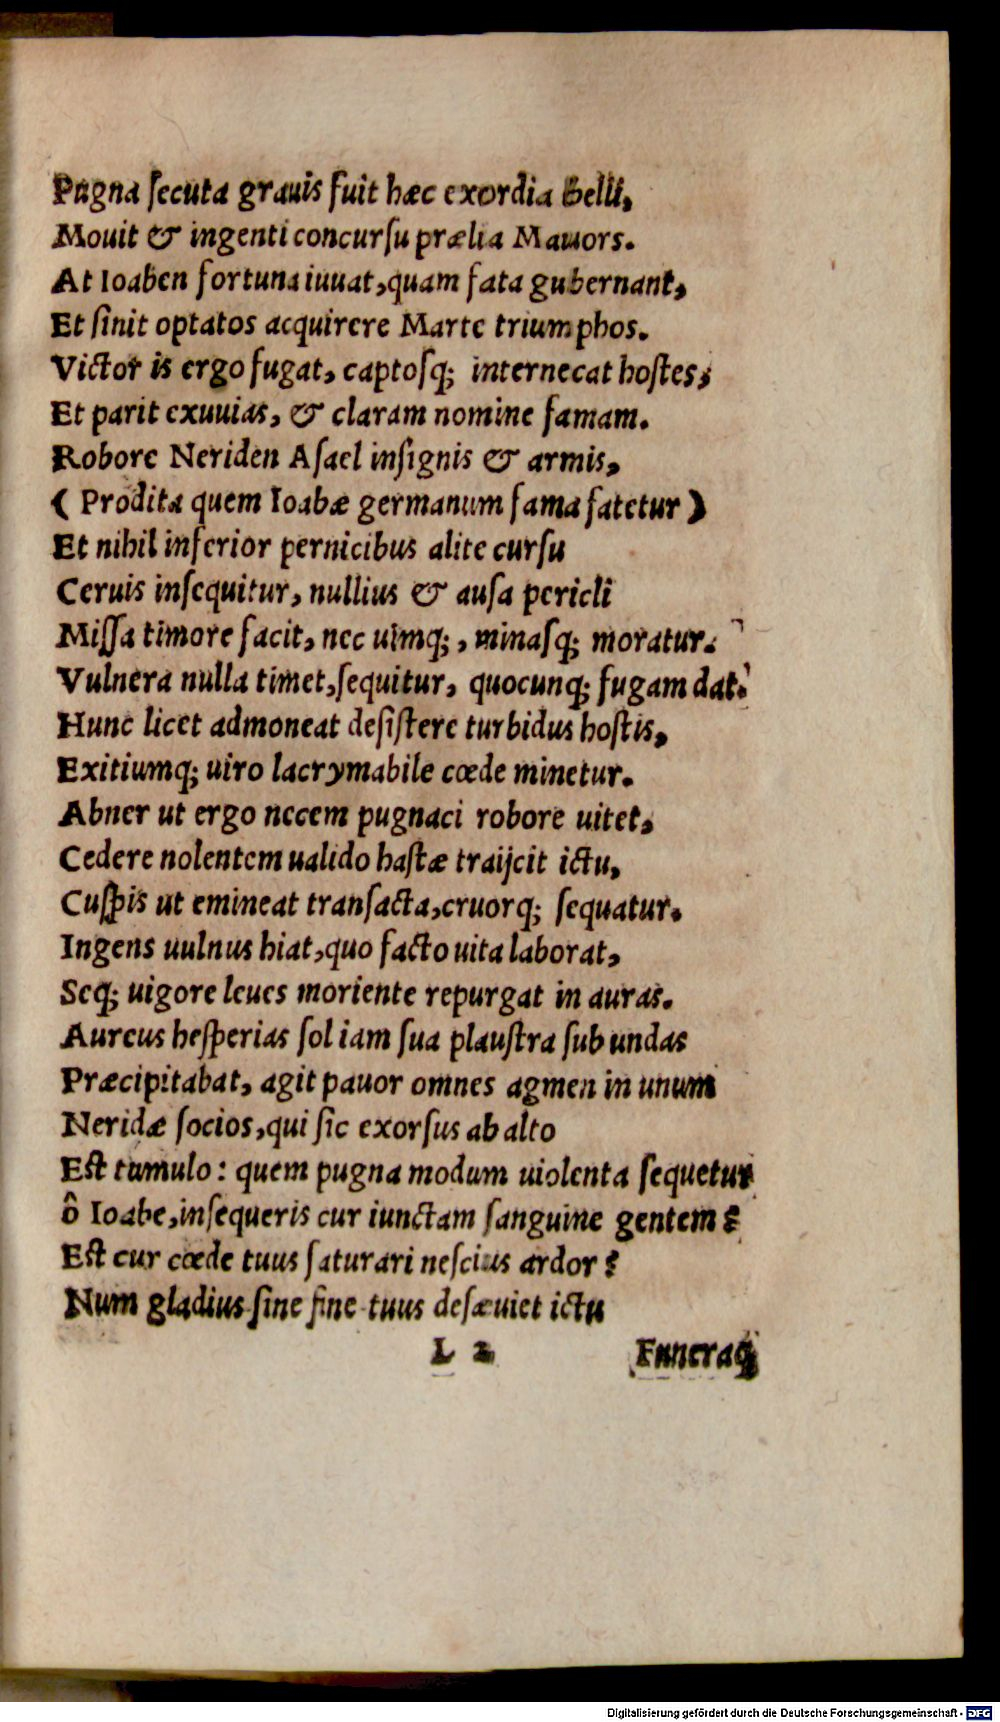 Pugna ſecuta grauis fuit hæc exordia Belli,
Mouit & ingenti concurſu prælia Mauors.
At Ioaben fortuna iuuat, quam fata gubernant,
Et ſinit optatos acquirere Marte triumphos.
Victor is ergo fugat, captoſq; internecat hoſtes,
Et parit exuuias, & claram nomine famam.
Robore Neriden Aſael inſignis & armis,
( Prodita quem Ioabæ germanum fama fatetur )
Et nihil inferior pernicibus alite curſu
Ceruis inſequitur, nullius & auſa pericli
Miſſa timore facit, nec uimq; , minaſq; moratur.
Vulnera nulla timet, ſequitur, quocunq; fugam dat.
Hunc licet admoneat deſiſtere turbidus hoſtis,
Exitiumq; uiro lacrymabile cœde minetur.
Abner ut ergo necem pugnaci robore uitet,
Cedere nolentem ualido haſtæ traijcit ictu,
Cuſpis ut emineat tranſacta, cruorq; ſequatur.
Ingens uulnus hiat, quo facto uita laborat,
Seq; uigore leues moriente repurgat in auras.
Aureus heſperias ſol iam ſua plauſtra ſub undas
Præcipitabat, agit pauor omnes agmen in unum
Neridæ ſocios, qui ſic exorſus ab alto
Eſt tumulo: quem pugna modum uiolenta ſequetur
ô Ioabe, inſequeris cur iunctam ſanguine gentem?
Eſt cur cœde tuus ſaturari neſcius ardor?
Num gladius ſine fine tuus deſæuiet ictu
L 2 Funeraq;
Digitalisierung gefördert durch die Deutsche Forschungsgemeinschaft - DFG